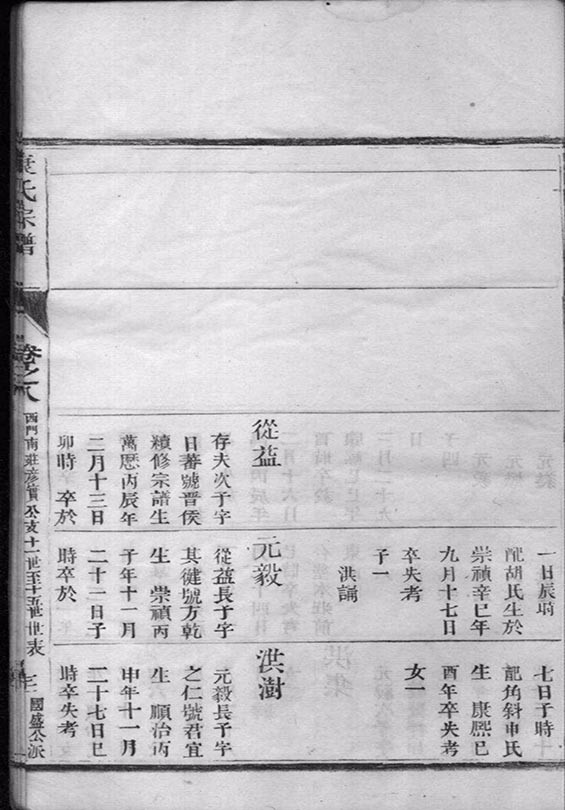 從益
存夫次子字
日蕃號晉侯
續修宗譜生
萬曆丙辰年
二月十三日
卯時 卒於
一日辰時
配胡氏生於
崇禎辛巳年
九月十七日
卒失考
子一
洪誦
元毅
從益長子字
其健號方乾
生 崇禎丙
子年十一月
二十一日子
時卒於
七日子時
配角斜申氏
生 康熙巳
酉年卒失考
女一
洪澍
元毅長子字
之仁號君宜
生 順治丙
申年十一月
二十七日巳
時卒失考
氏宗譜
卷之八
西門南莊彥賓公支十一世至十五世世表
國盛公派